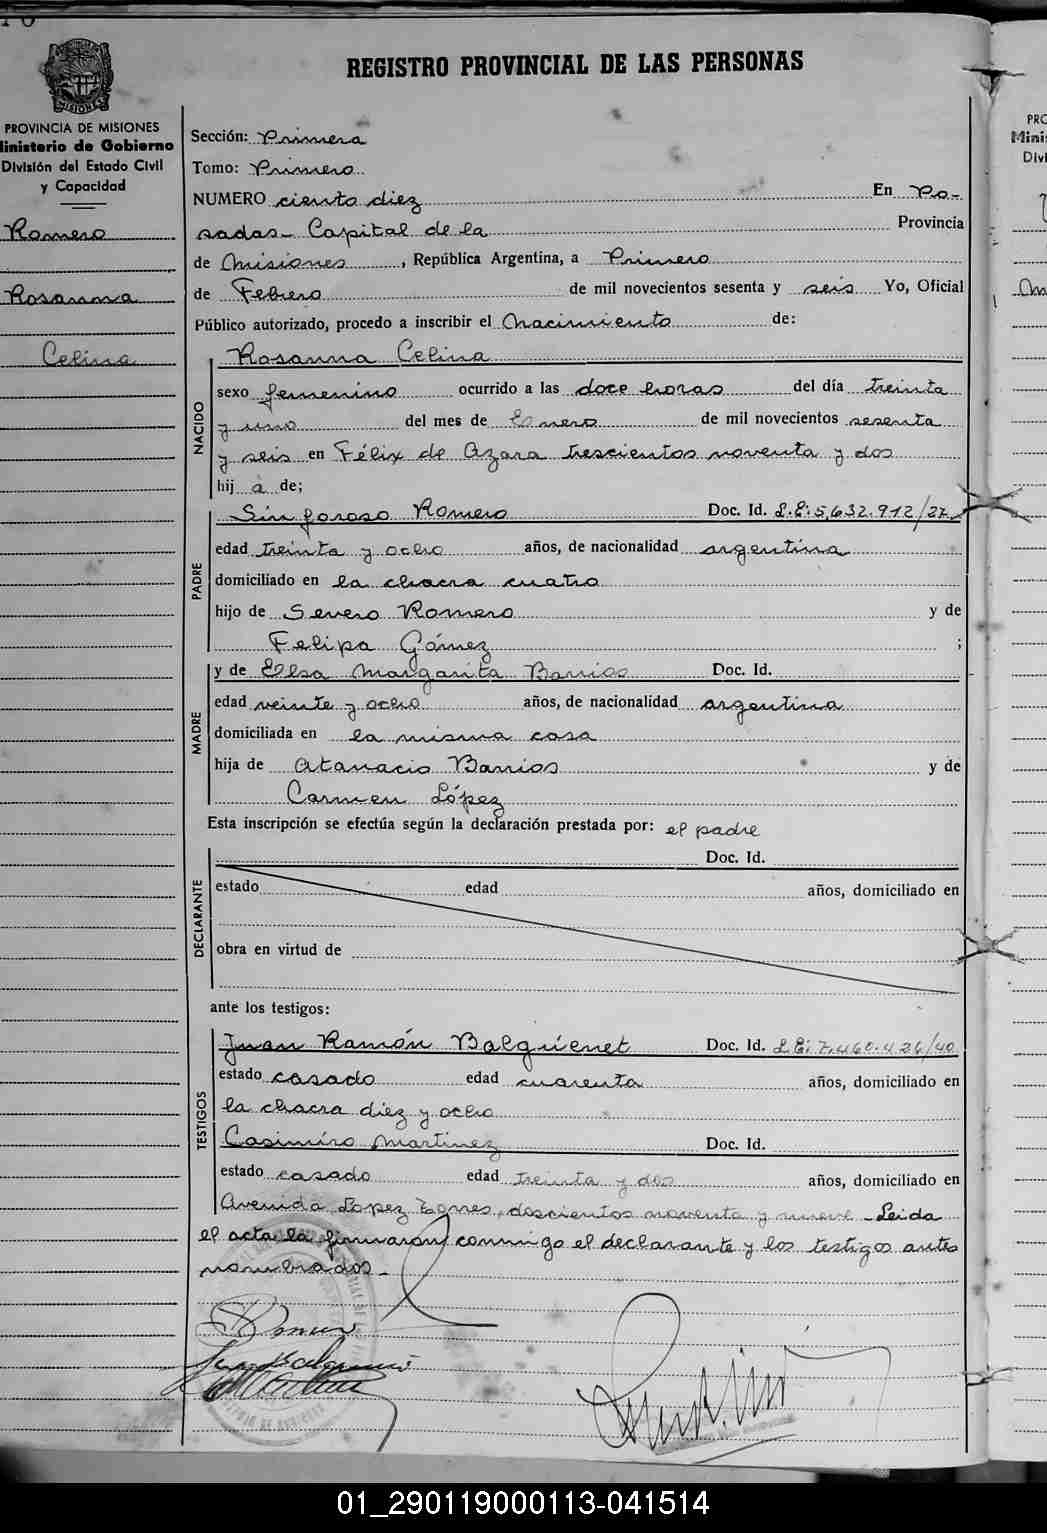 REGISTRO PROVINCIAL DE LAS PERSONAS
MISIONES
PROVINCIA DE MISIONES
Ministerio de Gobierno
División del Estado Civil
y Capacidad
Romero
Rosanna
Celina
Sección: Primera
Tomo: Primero
NUMERO ciento diez En Po-
sadas - Capital de la Provincia
de Misiones, República Argentina, a Primero
de Febrero de mil novecientos sesenta y seis Yo, Oficial
Público autorizado, procedo a inscribir el nacimiento de:
NACIDO
Rosanna Celina
sexo femenino ocurrido a las doce horas del día treinta
y uno del mes de Enero de mil novecientos sesenta
y seis en Félix de Azara trescientos noventa y dos
hij a de;
PADRE
Sinforoso Romero Doc. Id. L.E: 5.632.912/27
edad treinta y ocho años, de nacionalidad argentina
domiciliado en la chacra cuatro
hijo de Severo Romero y de
Felipa Gómez ;
MADRE
y de Elsa Margarita Barrios Doc. Id.
edad veinte y ocho años, de nacionalidad argentina
domiciliada en la misma casa
hija de Atanacio Barrios y de
Carmen López
Esta inscripción se efectúa según la declaración prestada por: el padre
DECLARANTE
Doc. Id.
estado edad años, domiciliado en
obra en virtud de
ante los testigos:
TESTIGOS
Juan Ramón Balguienet Doc. Id. L.E: 7.460.426/40
estado casado edad cuarenta años, domiciliado en
la chacra diez y ocho
Casimiro Martinez Doc. Id.
estado casado edad treinta y dos años, domiciliado en
Avenida Lopez Torres, doscientos noventa y nueve - Leida
el acta la firmaron conmigo el declarante y los testigos antes
nombrados -
01_290119000113-041514